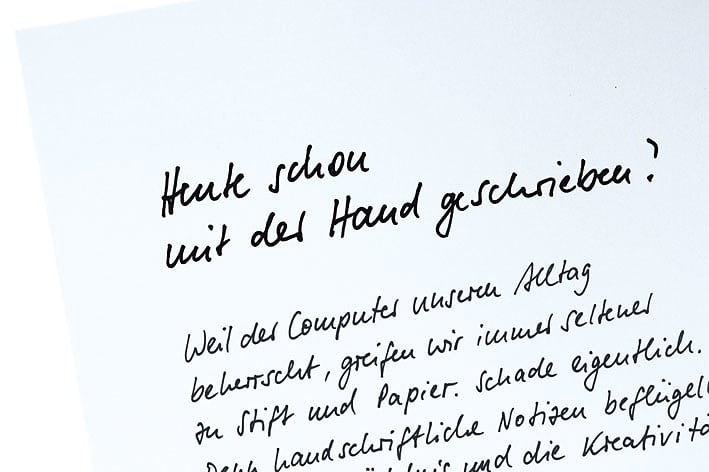 Heute schon
mit der Hand geschrieben?
Weil der Computer unseren Alltag
beherrscht, greifen wir immer seltener
zu Stift und Papier. Schade eigentlich.
Denn handschriftliche Notizen beflügel
und die Kreativitä